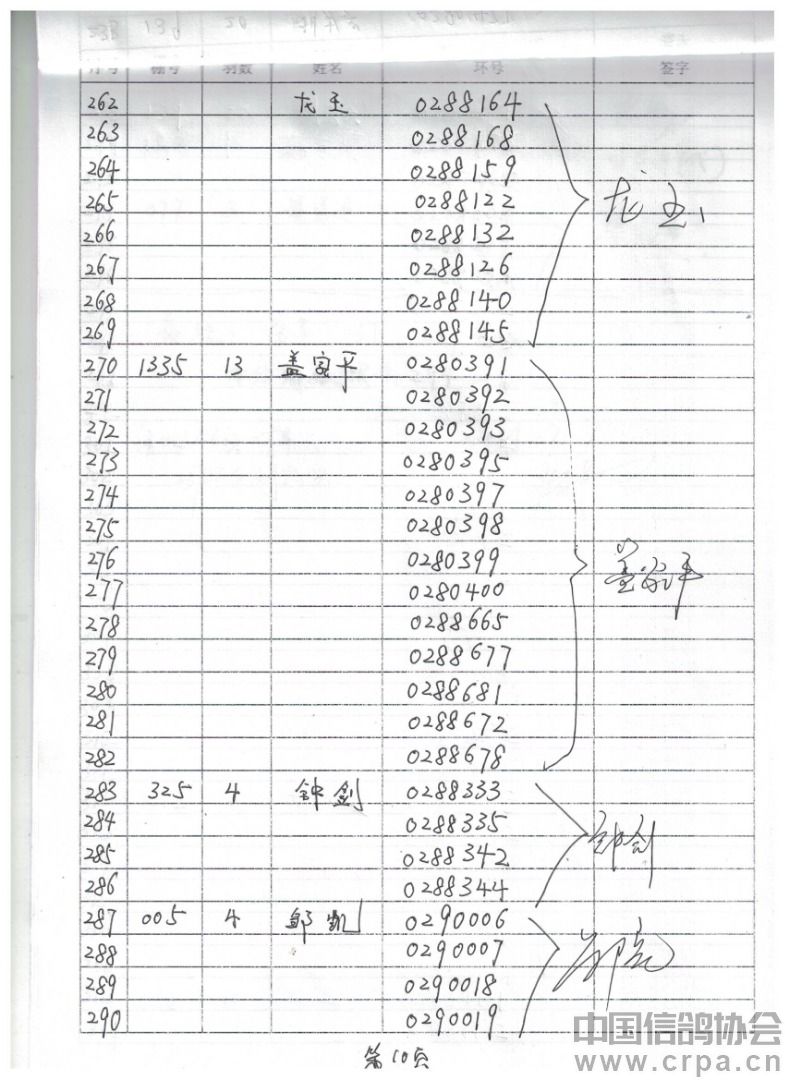 序号 棚号 羽数 姓名 环号 签字
262 龙玉 0288164
263 0288168
264 0288159
265 0288122
266 0288132
267 0288126
268 0288140
269 0288145
龙玉
270 1335 13 盖家平 0280391
271 0280392
272 0280393
273 0280395
274 0280397
275 0280398
276 0280399
277 0280400
278 0288665
279 0288677
280 0288681
281 0288672
282 0288678
盖家平
283 325 4 钟剑 0288333
284 0288335
285 0288342
286 0288344
钟剑
287 005 4 邹凯 0290006
288 0290007
289 0290018
290 0290019
邹凯
第10页
中国信鸽协会
www.crpa.cn